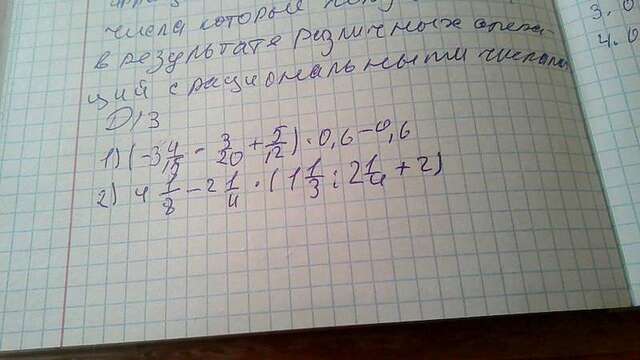 числа которые
в результате различных опера-
ций с рациональными числами
D/З
1) (-3 4/15 - 3/20 + 5/12) · 0,6 - 0,6
2) 4 1/8 - 2 1/4 · (1 1/3 : 2 1/4 + 2)
3.
4.